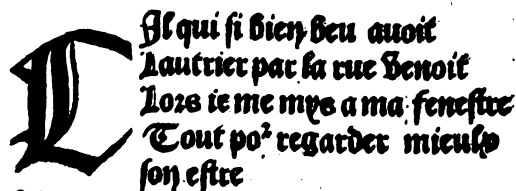 CIl qui si bien beu auoit
Lautrier par la rue Benoit
Lors ie me mys a ma fenestre
Tout po² regarder mieulx
son estre